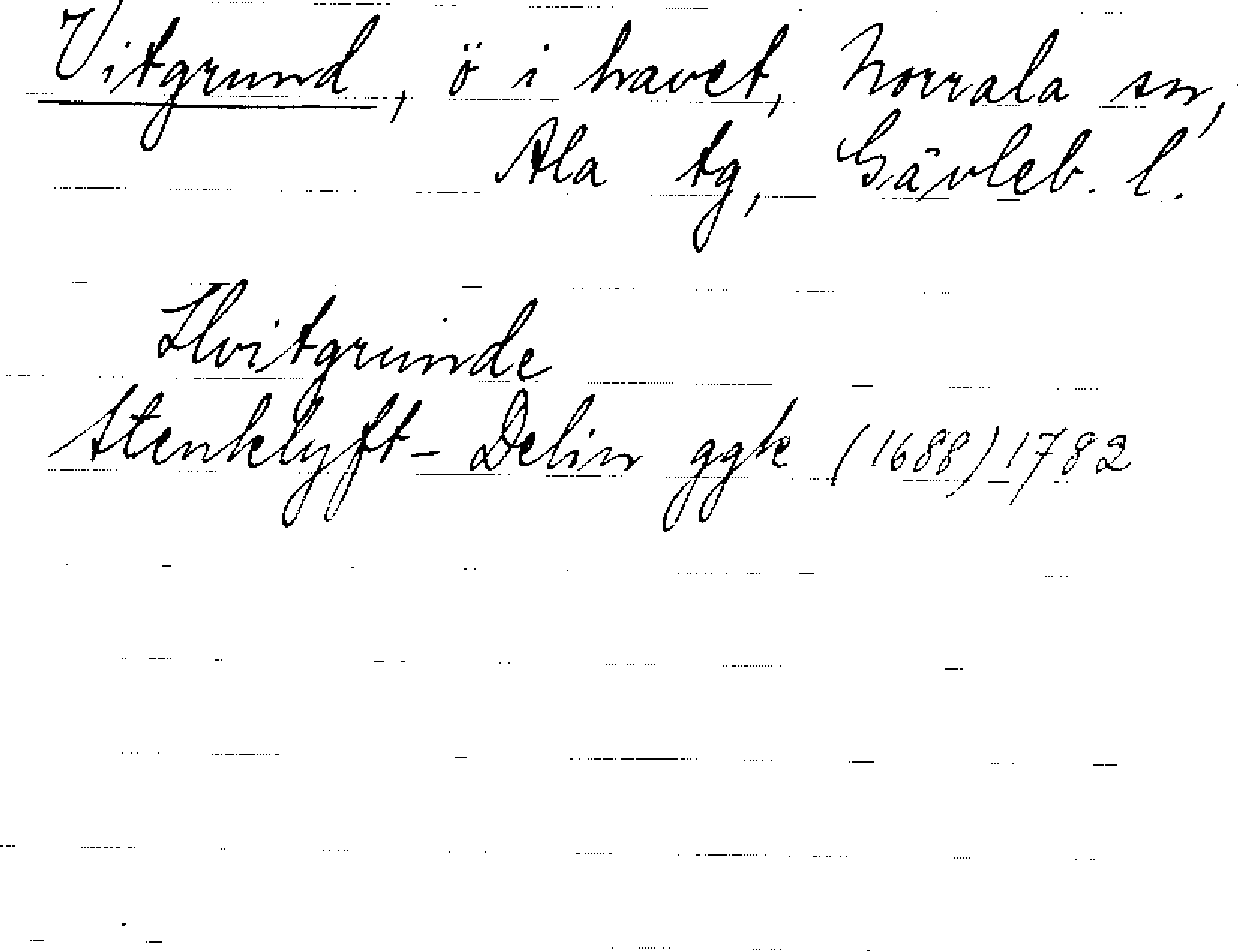 Vitgrund, ö i havet, Norrala sn,
Ala tg, Gävleb. l.
Hvitgrunde
Stenklyft- Delin ggk (1688) 1782